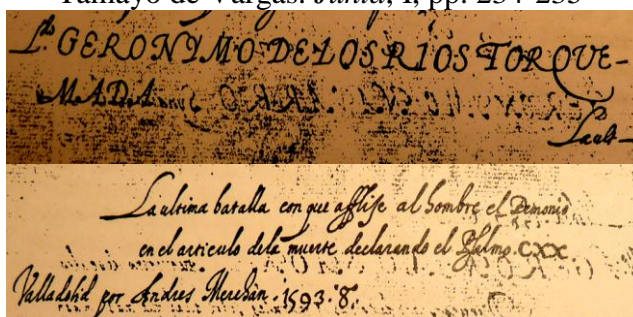 Tamayo de Vargas. Junta, I, pp. 234-235
L.do GERONYMO DE LOS RIOS TORQUE-
MADA.
La ult-
La ultima batalla con que afflije al hombre el Demonio
en el articulo dela muerte declarando el Psalmo. CXX.
Valladolid por Andres Merchan. 1593. 8.